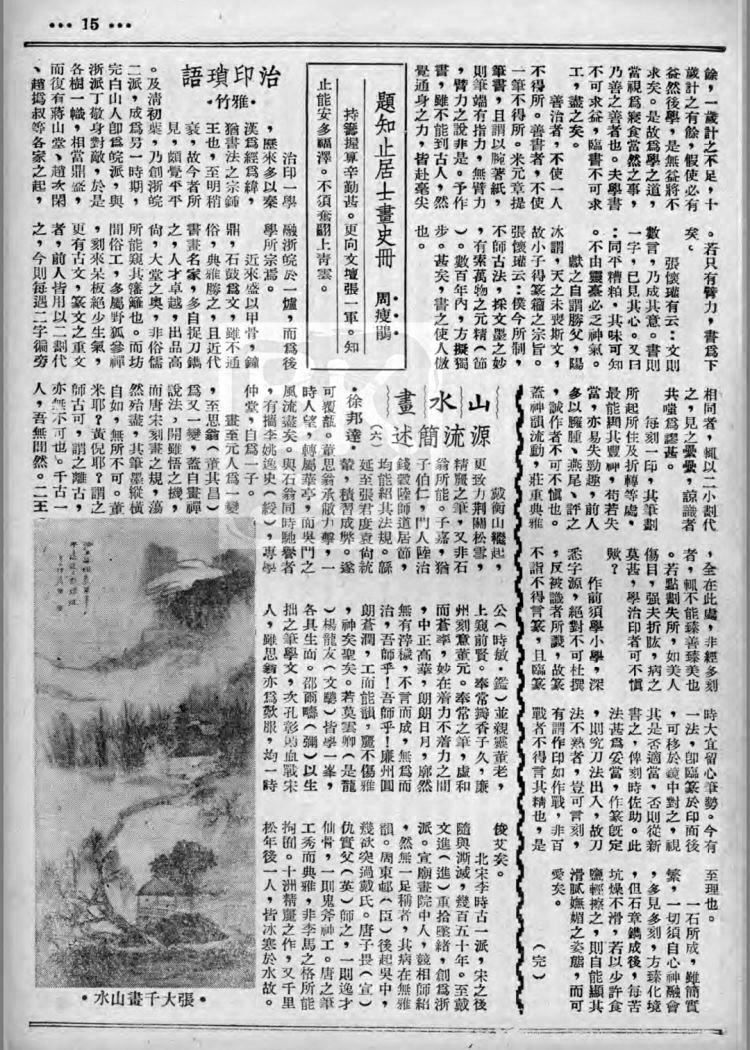 ••• 15 •••
餘,一歲計之不足,十
歲計之有餘,假使必有
益然後學,是無益將不
求矣。是故為學之道,
當視為寢食當然之事,
乃善之善者也。夫學書
不可求益,臨書不可求
工,盡之矣。
善治者,不使一人
不得所。善書者,不使
一筆不得所。米元章提
筆書,且謂以腕著紙,
則筆端有指力,無臂力
,臂力之說非是。予作
書,雖不能到古人,然
覺通身之力,皆赴毫尖
。若只有臂力,書為下
矣。
張懷瓘有云:文則
數言,乃成其意。書則
一字,已見其心。又曰
:同乎糟粕,其味可知
。不由靈臺必乏神氣。
獻之自謂勝父,陽
冰謂,天之未喪斯文,
故小子得篆籀之宗旨。
張懷瓘云:僕今所制,
不師古法,探文墨之妙
,有索萬物之元精(節
)。數百年內,方擬獨
步。甚矣,書之使人傲
也。
題知止居士畫史冊 周瘦鵑
持籌握算辛勤甚。更向文壇張一軍。知
止能安多福澤。不須奮翮上青雲。
治印瑣語
•雅竹•
治印一學
,歷來多以秦
漢為經為緯,
猶書法之宗鍾
王也,至明稍
衰,故今者所
見,頗覺平平
。及清初葉,乃創浙皖
二派,成為另一時期,
完白山人即為皖派,與
浙派丁敬身對敵,於是
各樹一幟,相當鼎盛,
而復有蔣山堂、趙次閑
、趙撝叔等各家之起,
融浙皖於一爐,而為後
學所宗焉。
近來盛以甲骨,鐘
鼎,石鼓為文,雖不通
俗,典雅勝之,且近代
書畫名家,多自捉刀鐫
之,人才卓越,出品高
尚,大堂之奧,非俗儒
所能窺其籓籬也。而坊
間俗工,多屬野狐參禪
,刻來呆板絕少生氣,
更有古文,篆文之重文
者,前人皆用以二劃代
之,今則每遇二字徧旁
相同者,輒以二小劃代
之,見之纍纍,諒識者
共嗤為謬甚。
每刻一印,其筆劃
所起所住及折轉等處,
最能關其丰神,苟若失
當,亦易失勁趣,前人
多以臃腫、燕尾、評之
,誠作者不可不慎也。
蓋神韻流動,莊重典雅
,全在此處,非經多刻
者,輒不能臻善臻美也
。若點劃失所,如美人
傷目,强夫折肱,病之
莫甚,學治印者可不慎
歟?
作前須學小學,深
悉字源,絕對不可杜撰
,反被識者所譏,故篆
不諧不得言篆,且臨篆
時大宜留心筆勢。今有
一法,卽臨篆於印面後
,可移於鏡中對之,視
其是否適當,否則從新
書之,俾刻時佐助。此
法甚為妥當,作篆旣定
,則究刀法出入,故刀
法不熟者,豈可言刻,
有謂作印如作戰,非百
戰者不得言其精也,是
至理也。
一石所成,雖簡實
繁,一切須自心神融會
,多見多刻,方臻化境
,但石章鐫成後,每苦
坑燥不滑,若以少許食
鹽輕擦之,則自能顯其
滑膩嫵媚之姿態,而可
愛矣。
(完)
山水畫
源流簡述
(六)
•徐邦達•
戴衡山繼起,
更致力荆關松雪,
精麗之筆,又非石
翁所能。子嘉,猶
子伯仁,門人陸治
錢穀陸師道居節,
均能紹其法規。緜
延至張君度袁尙統
輩,積習成弊。遂
可覆瓿。董思翁承敝力擊,一
時人望,轉屬華亭,而吳門之
風流盡矣。與石翁同時馳譽者
,有攜李姚逸史(綬),專學
仲堂,自為一子。
畫至元人為一變
,至思翁(董其昌)
為又一變,蓋自畫禪
說法,開雖悟之機,
而唐宋刻畫之規,蕩
然殆盡,其筆墨縱橫
自如,無所不可。董
米耶?黃倪耶?謂之
師古可,謂之離古,
亦無不可也。千古一
人,吾無間然。二王
公(時敏・鑑)並親靈董老,
上窺前賢。奉常獨香子久,廉
州刻意董元。奉常之筆,虛和
而蒼率,妙在着力不着力之間
,中正高華,朗朗日月,廓然
無有滓穢,不言而成,無為而
治,吾師乎!吾師乎!廉州圓
朗蒼潤,工而能韻,麗不傷雅
,神矣聖矣。若莫雲卿(是龍
)楊龍友(文驄)皆學一峯,
各具生面。邵爾疇(彌)以生
拙之筆學文,
人,雖思翁亦為歎服,均一時
俊艾矣。
北宋李時古一派,宋之後
隨與澌滅,幾百五十年。至戴
文進(進)重拾墜緒,創為浙
派。宣廟畫院中人,競相師紹
,然無一足稱者,其病在無雅
韻。周東邨(臣)後起吳中,
幾欲突過戴氏。唐子畏(寅)
仇實父(英)師之,一則逸才
仙骨,一則鬼斧神工。唐之筆
工秀而典雅,非李馬之格所能
拘囿。十洲精麗之作,又千里
松年後一人,皆冰寒於水故。
•張大千畫山水•